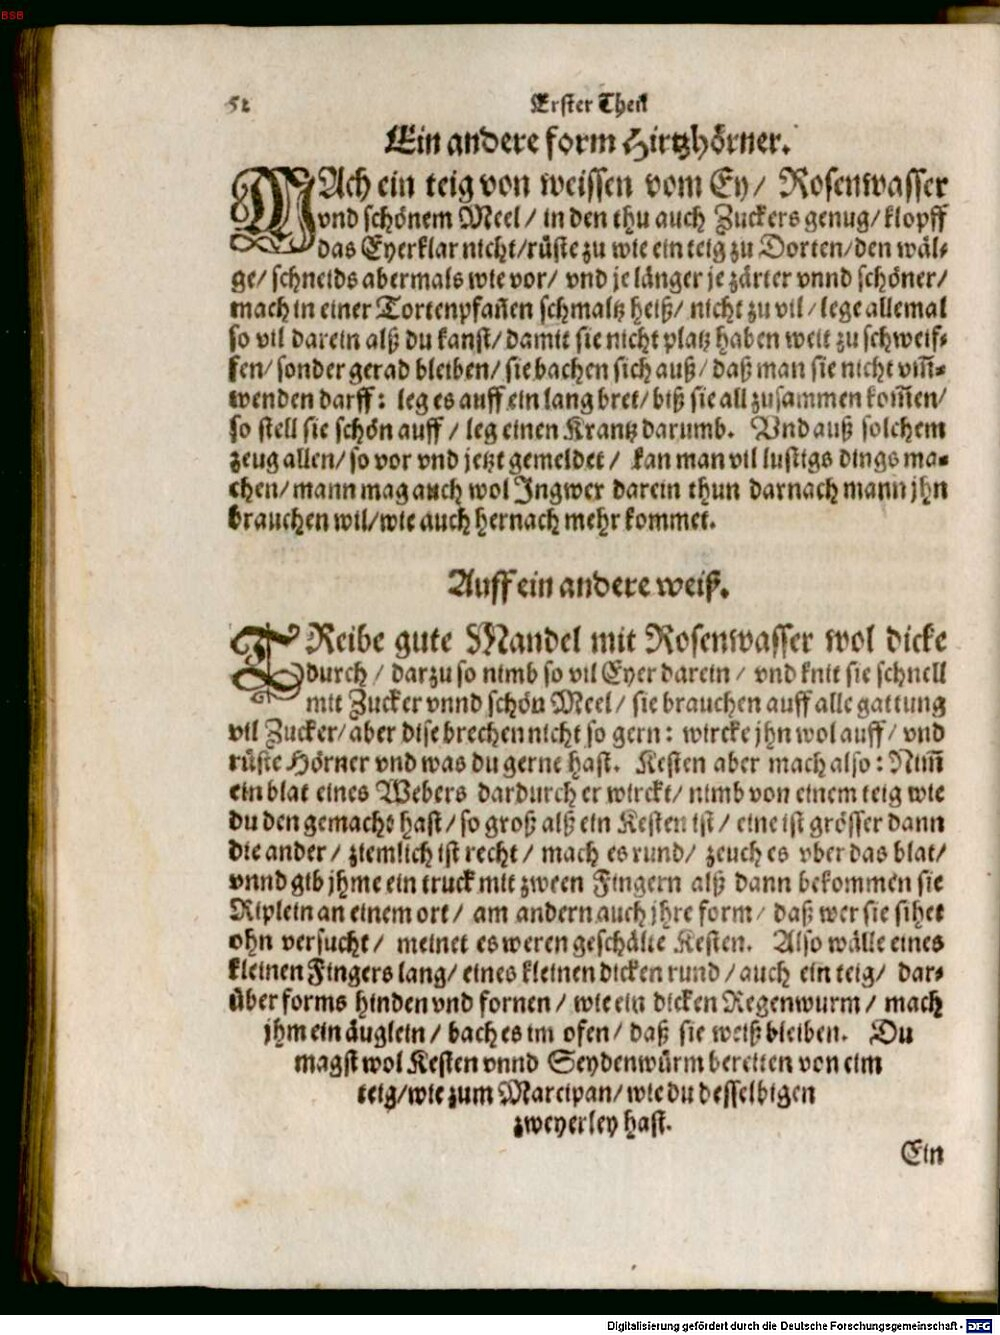 BSB
52 Erster Theil
Ein andere form Hirtzhörner.
MAch ein teig von weissen vom Ey/ Rosenwasser
vnd schönem Meel/ in den thu auch Zuckers genug/ klopff
das Eyerklar nicht/ rüste zu wie ein teig zu Dorten/ den wäl-
ge/ schneids abermals wie vor/ vnd je länger je zärter vnnd schöner/
mach in einer Tortenpfañen schmaltz heiß/ nicht zu vil/ lege allemal
so vil darein alß du kanst/ damit sie nicht platz haben weit zu schweif-
fen/ sonder gerad bleiben/ sie bachen sich auß/ daß man sie nicht vm̃-
wenden darff: leg es auff ein lang bret/ biß sie all zusammen kom̃en/
so stell sie schön auff/ leg einen Krantz darumb. Vnd auß solchem
zeug allen/ so vor vnd jetzt gemeldet/ kan man vil lustigs dings ma-
chen/ mann mag auch wol Ingwer darein thun darnach mann jhn
brauchen wil/ wie auch hernach mehr kommet.
Auff ein andere weiß.
TReibe gute Mandel mit Rosenwasser wol dicke
durch/ darzu so nimb so vil Eyer darein/ vnd knit sie schnell
mit Zucker vnnd schön Meel/ sie brauchen auff alle gattung
vil Zucker/ aber dise brechen nicht so gern: wircke jhn wol auff/ vnd
rüste Hörner vnd was du gerne hast. Kesten aber mach also: Nim̃
ein blat eines Webers dardurch er wirckt/ nimb von einem teig wie
du den gemacht hast/ so groß alß ein Kesten ist/ eine ist grösser dann
die ander/ ziemlich ist recht/ mach es rund/ zeuch es vber das blat/
vnnd gib jhme ein truck mit zween Fingern alß dann bekommen sie
Riplein an einem ort/ am andern auch jhre form/ daß wer sie sihet
ohn versucht/ meinet es weren geschälte Kesten. Also wälle eines
kleinen Fingers lang/ eines kleinen dicken rund/ auch ein teig/ dar-
über forms hinden vnd fornen/ wie ein dicken Regenwurm/ mach
jhm ein äuglein/ bach es im ofen/ daß sie weiß bleiben. Du
magst wol Kesten vnnd Seydenwürm bereiten von eim
teig/ wie zum Marcipan/ wie du desselbigen
zweyerley hast.
Ein
Digitalisierung gefördert durch die Deutsche Forschungsgemeinschaft - DFG